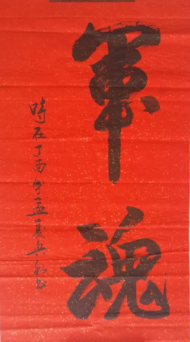 軍魂
時在丁酉年孟夏